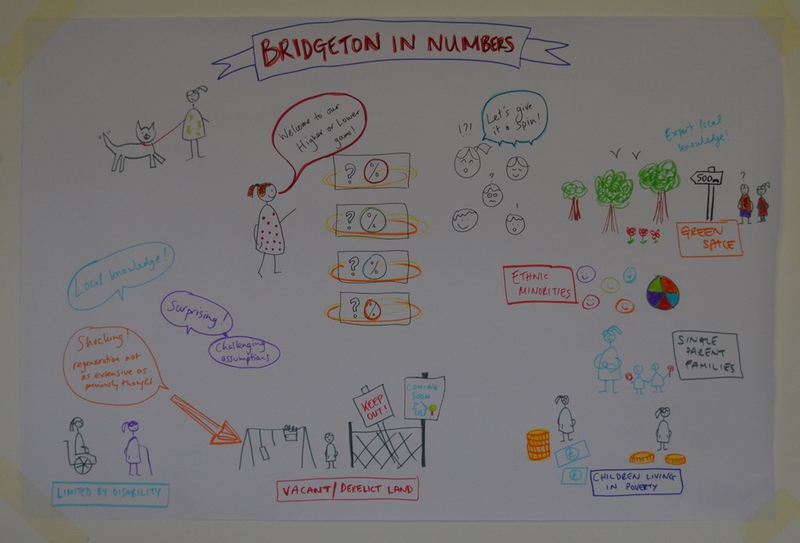 BRIDGETON IN NUMBERS
Welcome to our
Higher or Lower
game!
? %
? %
? %
? %
!?!
Let's give
it a spin!
?
!
Expert local
knowledge!
500m
?
GREEN
SPACE
ETHNIC
MINORITIES
SINGLE
PARENT
FAMILIES
Local knowledge!
Surprising!
Challenging
assumptions
Shocking!
regeneration not
as extensive as
previously thought
KEEP
OUT!
COMING
SOON
LIMITED BY DISABILITY
VACANT/DERELICT LAND
£
£
CHILDREN LIVING
IN POVERTY